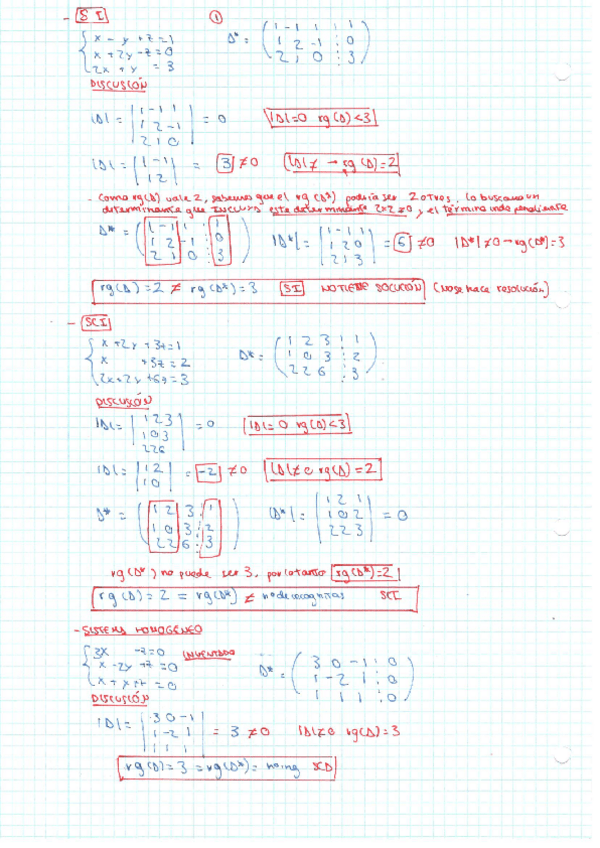 - SI ①
x - y + z = 1
x + 2y - z = 0
2x + y = 3
A* = ( 1 -1 1 : 1
1 2 -1 : 0
2 1 0 : 3 )
DISCUSIÓN
|A| = | 1 -1 1
1 2 -1
2 1 0 | = 0 |A|=0 rg(A)<3
|A| = | 1 -1
1 2 | = 3 ≠0 |A|≠ → rg(A)=2
- Como rg(A) vale 2, sabemos que el rg(A*) podría ser 2 o tres. Lo busco un
determinante que INCLUYA este determinante 2x2 ≠0, y el término independiente
A* = ( 1 -1 1 : 1
1 2 -1 : 0
2 1 0 : 3 )
|A*| = | 1 -1 1
1 2 0
2 1 3 | = 6 ≠0 |A*|≠0 → rg(A*)=3
rg(A)=2 ≠ rg(A*)=3 SI NO TIENE SOLUCIÓN (No se hace resolución)
- SCI
x + 2y + 3z = 1
x + 3z = 2
2x + 2y + 6z = 3
A* = ( 1 2 3 : 1
1 0 3 : 2
2 2 6 : 3 )
DISCUSIÓN
|A| = | 1 2 3
1 0 3
2 2 6 | = 0 |A|=0 rg(A)<3
|A| = | 1 2
1 0 | = -2 ≠0 |A|≠0 rg(A)=2
A* = ( 1 2 3 : 1
1 0 3 : 2
2 2 6 : 3 )
|A*| = | 1 2 1
1 0 2
2 2 3 | = 0
rg(A*) no puede ser 3, por lo tanto rg(A*)=2
rg(A) = 2 = rg(A*) ≠ no de incognitas SCI
- SISTEMA HOMOGÉNEO
3x - z = 0 INVENTADO
x - 2y + z = 0
x + y + z = 0
A* = ( 3 0 -1 : 0
1 -2 1 : 0
1 1 1 : 0 )
DISCUSIÓN
|A| = | 3 0 -1
1 -2 1
1 1 1 | = 3 ≠0 |A|≠0 rg(A)=3
rg(A)=3 = rg(A*) = no ing SCD